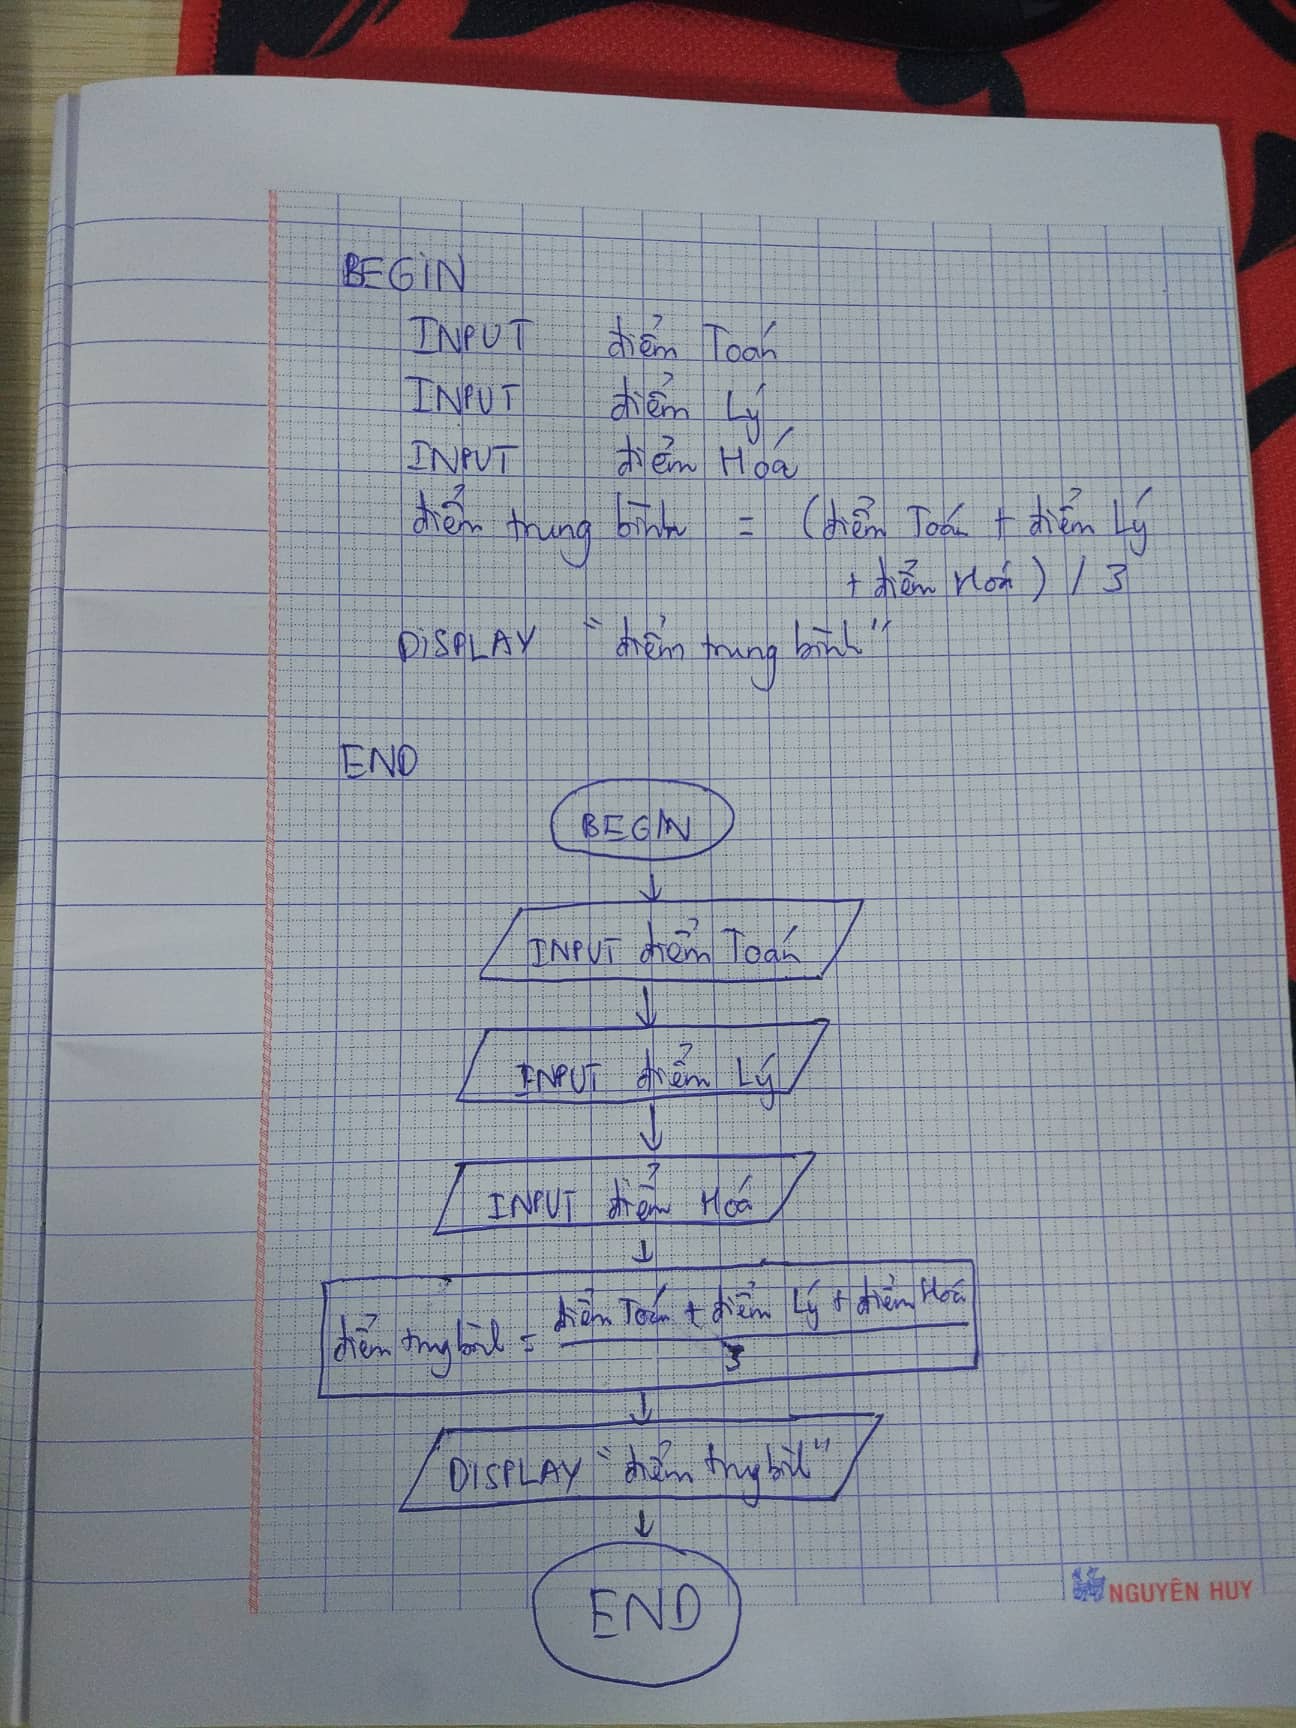 BEGIN
INPUT điểm Toán
INPUT điểm Lý
INPUT điểm Hoá
điểm trung bình = (điểm Toán + điểm Lý
+ điểm Hoá) / 3
DISPLAY "điểm trung bình"
END
BEGIN
INPUT điểm Toán
INPUT điểm Lý
INPUT điểm Hoá
điểm Toán + điểm Lý + điểm Hoá
điểm trung bình =
3
DISPLAY "điểm trung bình"
END
NGUYÊN HUY